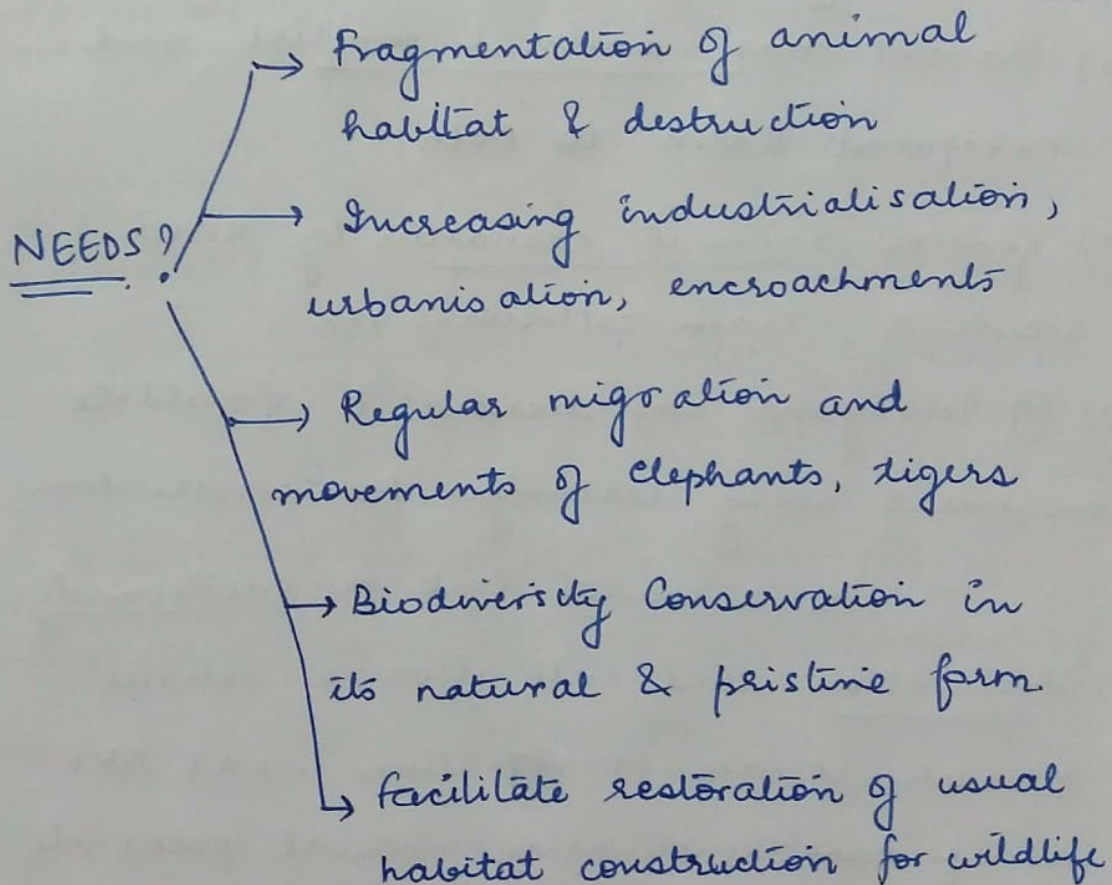 → Fragmentation of animal
habitat & destruction
→ Increasing industrialisation,
urbanisation, encroachments
NEEDS?
→ Regular migration and
movements of elephants, tigers
→ Biodiversity Conservation in
its natural & pristine form.
→ facilitate restoration of usual
habitat construction for wildlife